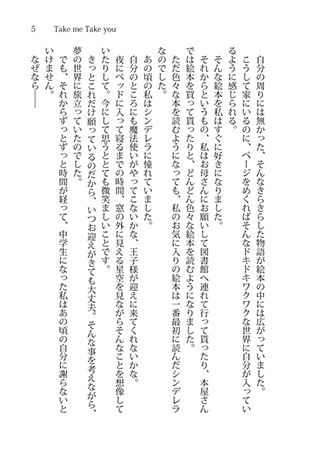 5　Take me Take you
自分の周りには無かった、そんなきらきらした物語が絵本の中には広がっていました。
こうして家にいるのに、ページをめくればそんなドキドキワクワクな世界に自分が入ってい
るように感じられる。
そんな絵本を私はすぐに好きになりました。
それからというもの、私はお母さんにお願いして図書館へ連れて行って貰ったり、本屋さん
では絵本を買って貰ったりと、どんどん色々な絵本を読むようになりました。
ただ色々な本を読むようになっても、私のお気に入りの絵本は一番最初に読んだシンデレラ
なのでした。
あの頃の私はシンデレラに憧れていました。
自分のところにも魔法使いがやってこないかな、王子様が迎えに来てくれないかな。
夜にベッドに入って寝るまでの時間、窓の外に見える星空を見ながらそんなことを想像して
いたりして。今にして思うととても微笑ましいことです。
きっとこれだけ願っているのだから、いつお迎えがきても大丈夫。そんな事を考えながら、
夢の世界に旅立っていたのでした。
でも、それからずっとずっと時間が経って、中学生になった私はあの頃の自分に謝らないと
いけません。
なぜなら――